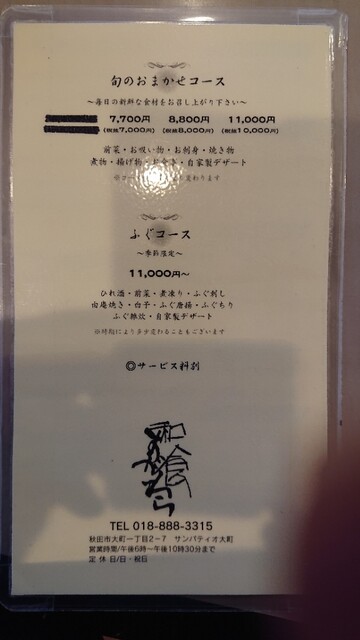 旬のおまかせコース
～毎日の新鮮な食材をお召し上がり下さい～
7,700円 8,800円 11,000円
(税抜7,000円) (税抜8,000円) (税抜10,000円)
前菜・お吸い物・お刺身・焼き物
煮物・揚げ物・お食事・自家製デザート
ふぐコース
～季節限定～
11,000円～
ひれ酒・前菜・煮凍り・ふぐ刺し
由庵焼き・白子・ふぐ唐揚・ふぐちり
ふぐ雑炊・自家製デザート
※時期により多少変わることもございます
◎サービス料別
和食
TEL 018-888-3315
秋田市大町一丁目2－7 サンパティオ大町
営業時間/午後6時～午後10時30分まで
定 休 日/日・祝日